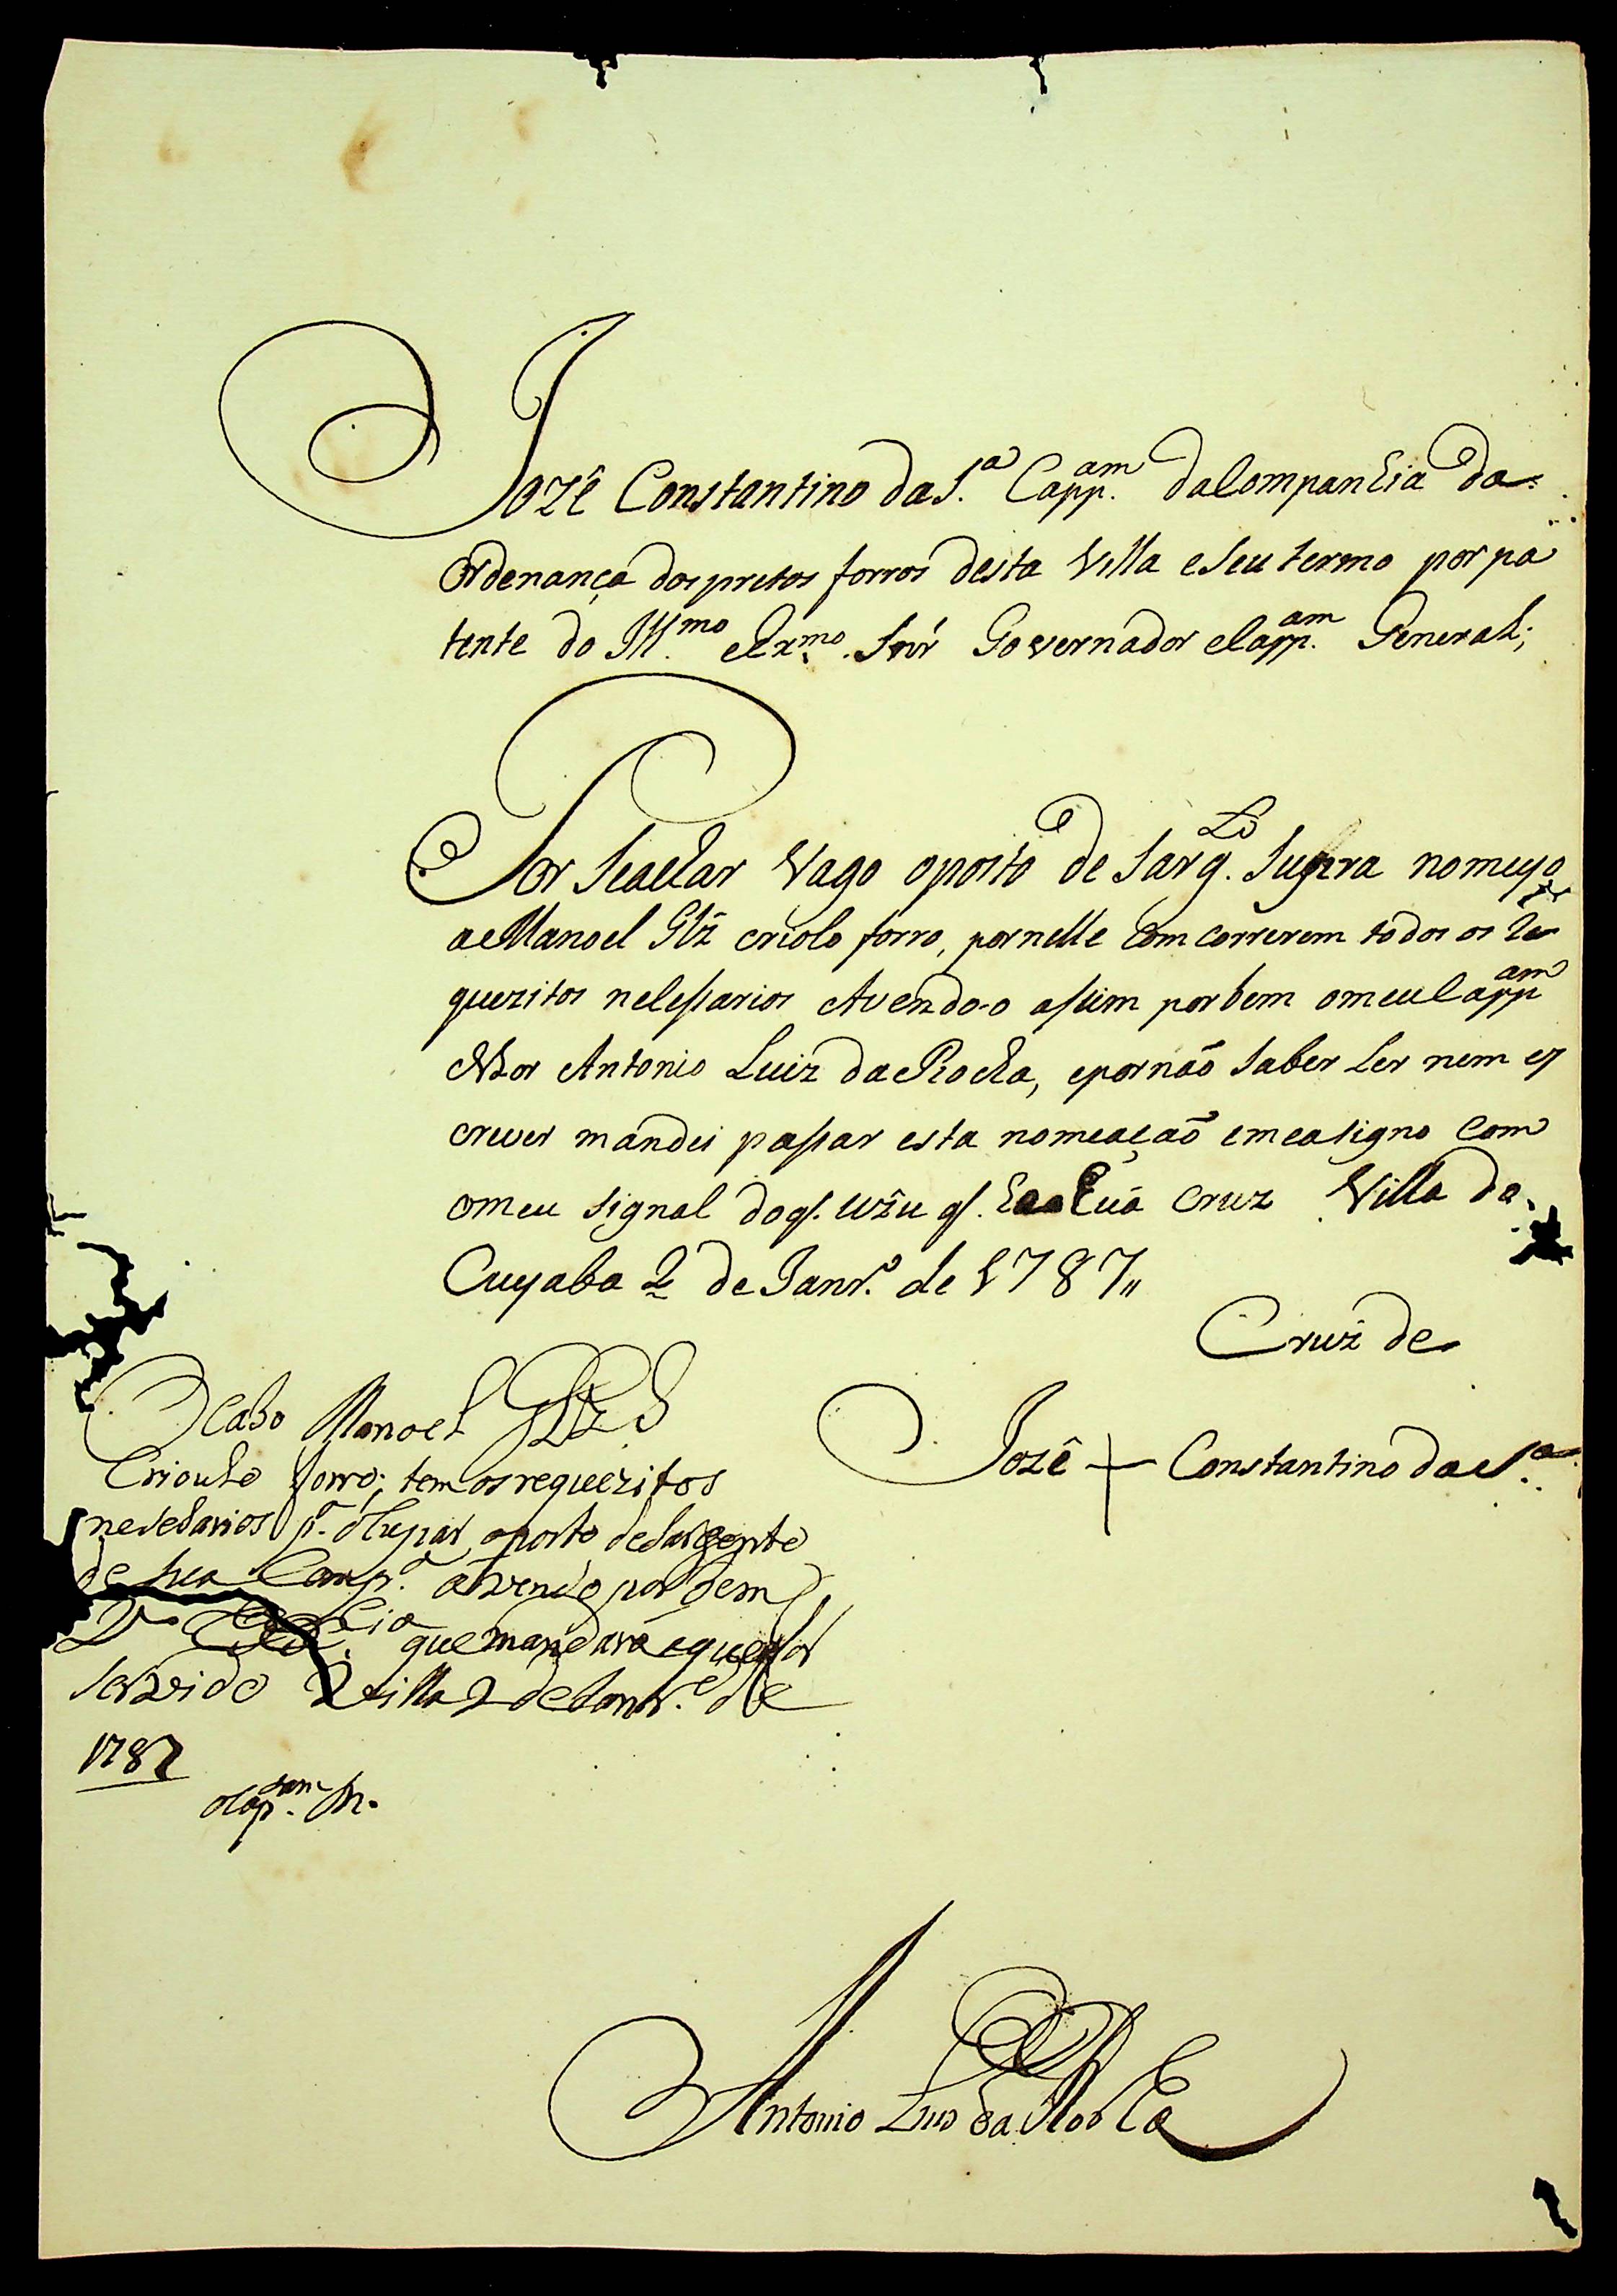 Jozê Constantino da S.ª Capp.am da Companhia da
Ordenança dos pretos forros desta Villa e seu termo por pa
tente do Ill.mo e Ex.mo Snr̃ Governador e Capp.am General;
Por se achar Vago o posto de Sarg.to Supra nomeyo
a Manoel Glz̃ criolo forro, por nelle comcorrerem todos os re
quezitos necessarios Avendo-o assim por bem o meu Capp.am
Mor Antonio Luiz da Rocha, e por não saber Ler nem es
crever mandei passar esta nomeação em ea signo com
o meu signal do q̃. uzu q̃. he huã Cruz Villa do
Cuyaba 2 de Janr.º de 1787,,
Cruz de
Jozê + Constantino da S.ª
O Cabo Manoel Glz̃
Crioulo forro; tem os requezitos
nesesarios p.ª ocupar o posto de Sargento
de sua Comp.ª avendo por bem
que mandará o que for
servido Villa 2 de Janr.º de
1787
o Cap.tam M.
Antonio Luis da Rocha